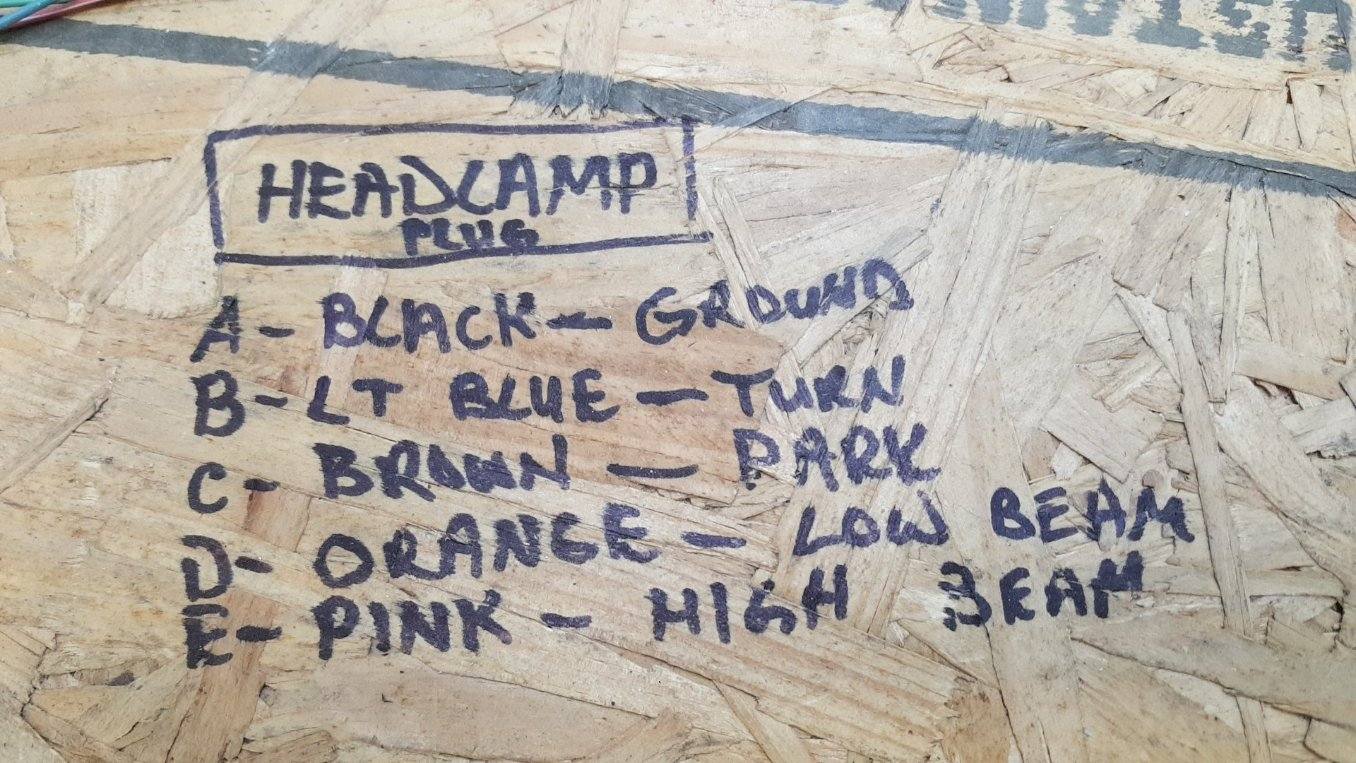 HEADLAMP
PLUG
A- BLACK - GROUND
B- LT BLUE - TURN
C- BROWN - PARK
D- ORANGE - LOW BEAM
E- PINK - HIGH BEAM